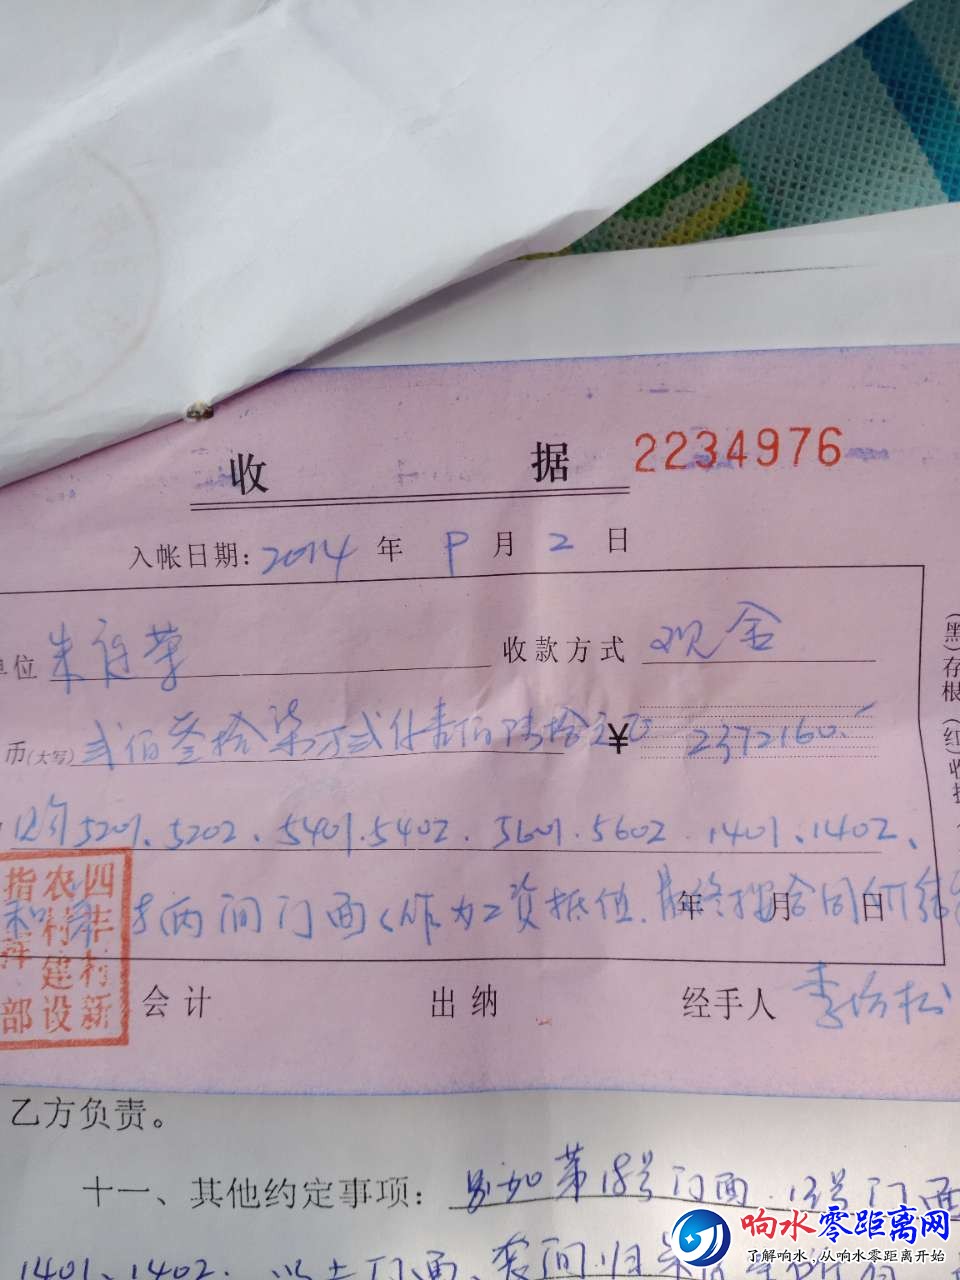 收 据 2234976
入帐日期: 2014 年 9 月 2 日
单位 朱 荣 收款方式 现金
币(大写) 贰佰叁拾柒万贰仟壹佰陆拾元正 ¥ 2372160.
5201、5202、5401、5402、5601、5602、1401、1402、
两间门面(作为工资抵值,最终按合同价结 年 月 日
四丰村新
农村建设
指挥部
会计 出纳 经手人 李 松
(黑)存根 (红)收据
乙方负责。
十一、其他约定事项: 另加第18号门面、13号门面
1401、1402.以上门面、套间归
响水零距离网
了解响水,从响水零距离开始